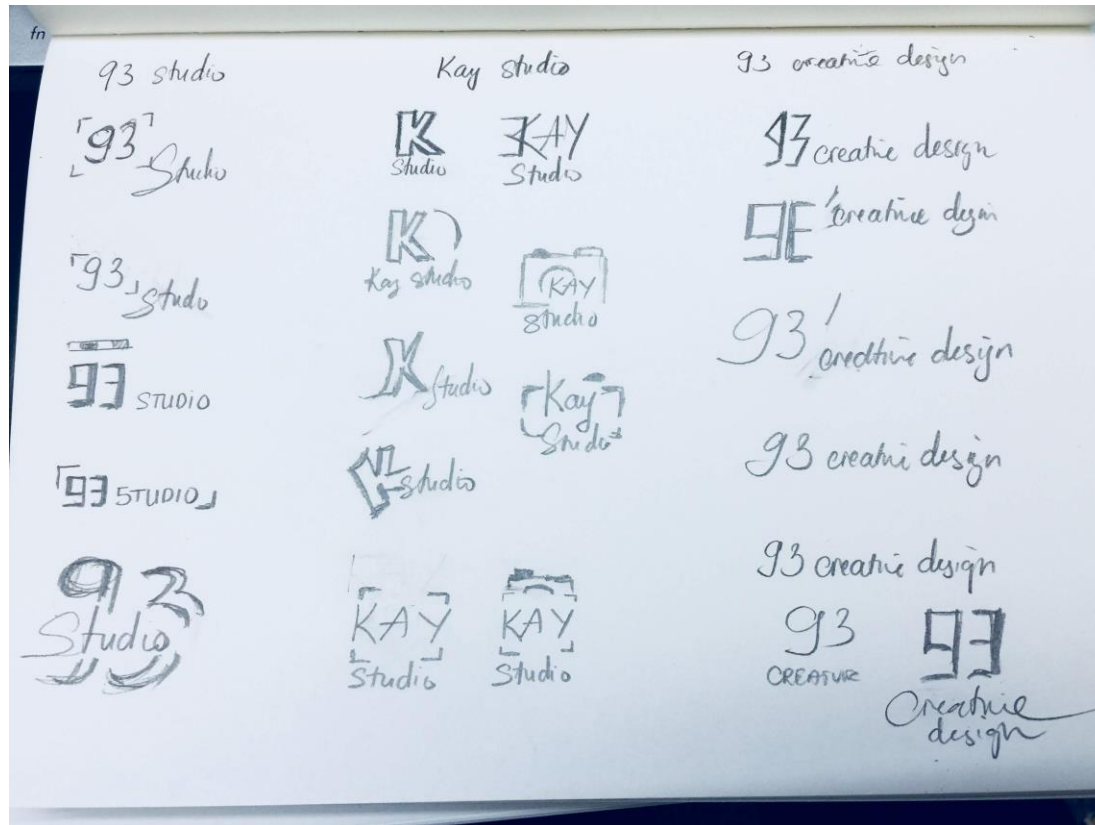 fn
93 studio
「93」
Studio
「93」
Studo
93 STUDIO
「93 STUDIO」
93
Studio
Kay studio
K
Studio
KAY
Studio
K
Kay studio
KAY
Studio
K Studio
Kay
Studio
K studio
KAY
Studio
KAY
Studio
93 creative design
93 creative design
9E creative
93 creative design
93 creative design
93 creative design
93
CREATIVE
93
Creative
design